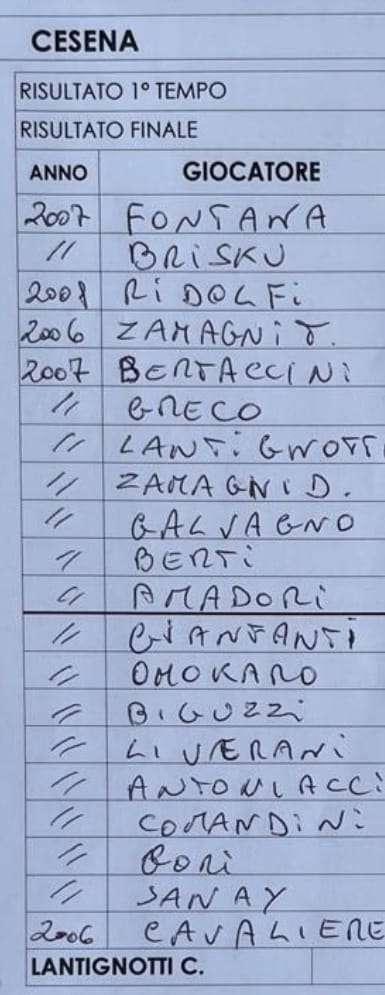 CESENA
RISULTATO 1° TEMPO
RISULTATO FINALE
ANNO GIOCATORE
2007 FONTANA
// BRiSKU
2008 RiDOLFi
2006 ZAMAGNi T.
2007 BERTACCINi
// GRECO
// LANTiGNOTTi
// ZAMAGNI D.
// GALVAGNO
// BERTi
// AMADORi
// GIANFANTI
// OMOKARO
// BIGUZZi
// LIVERANi
// ANTONIACCi
// COMANDiNi
// GORi
// SANAY
2006 CAVALIERE
LANTIGNOTTI C.